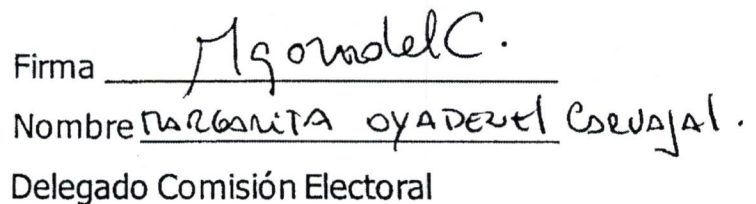 Firma
Nombre MARGARITA OYADENEL CARVAJAL.
Delegado Comisión Electoral